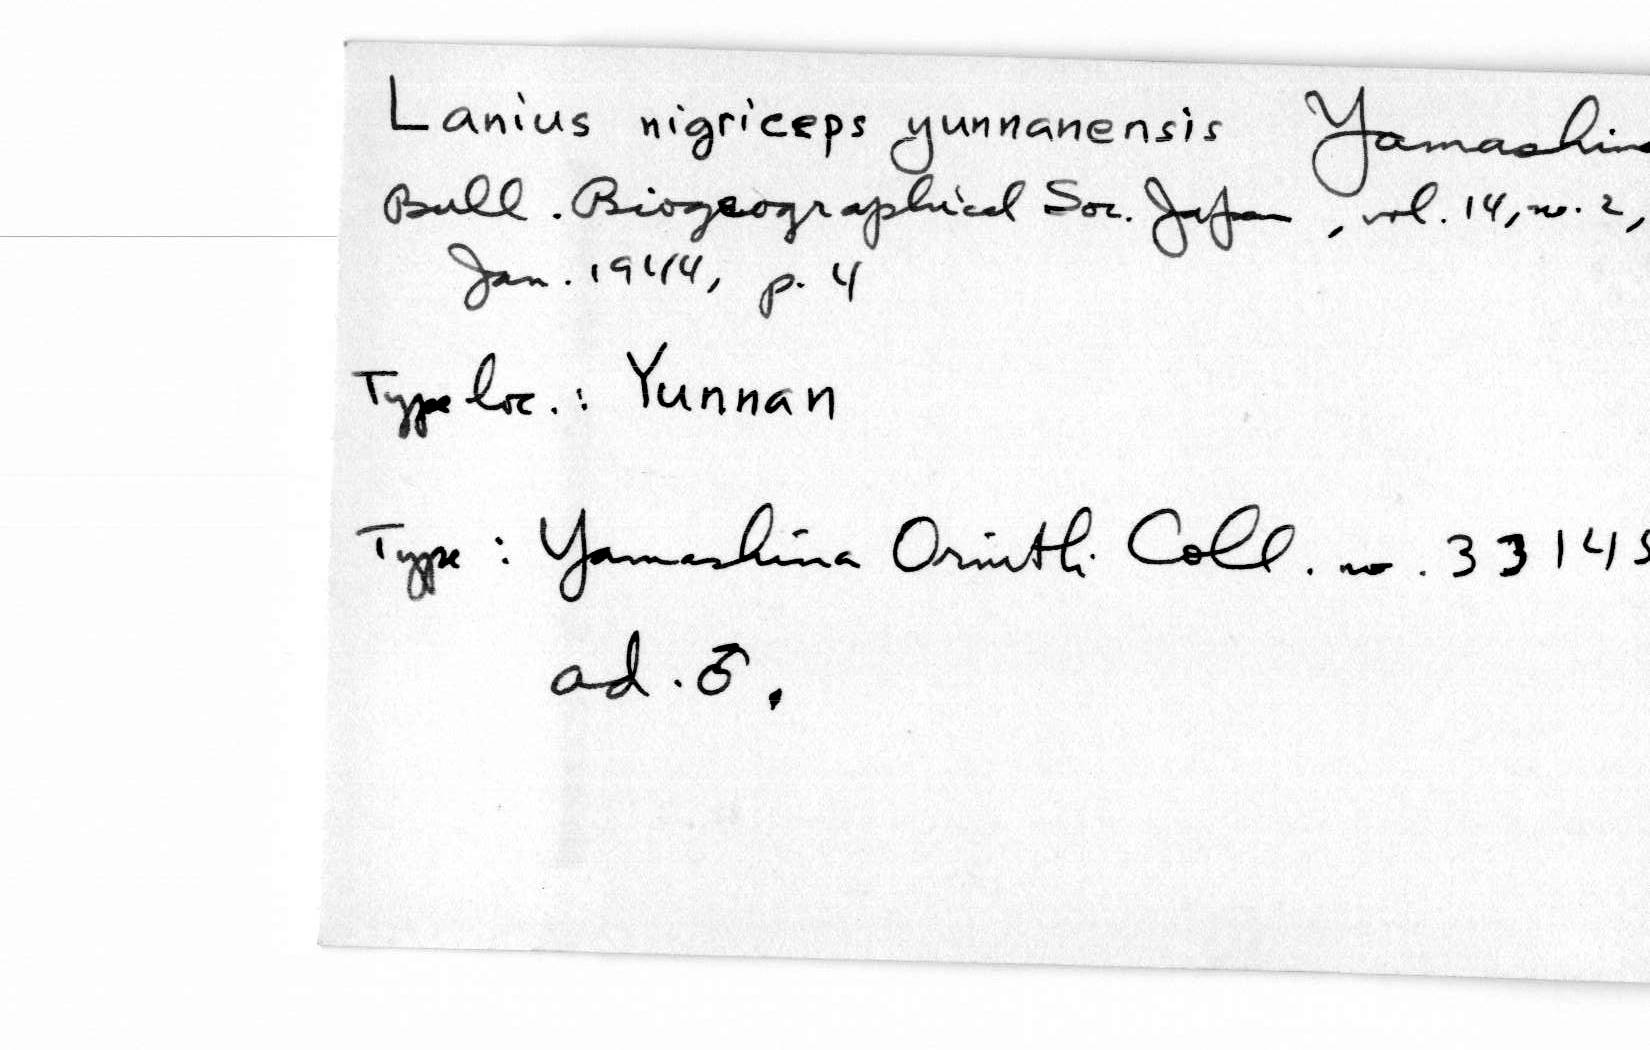 Lanius nigriceps yunnanensis Yamashina
Bull. Biogeographical Soc. Japan, vol. 14, no. 2,
Jan. 1944, p. 4
Type loc.: Yunnan
Type: Yamashina Ornith. Coll. no. 33145
ad. ♂.